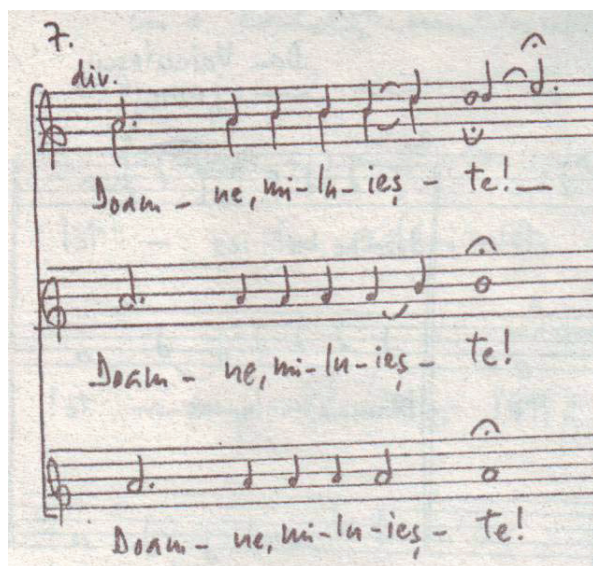 7.
div.
Doam - ne, mi - lu - ieș - te!
Doam - ne, mi - lu - ieș - te!
Doam - ne, mi - lu - ieș - te!